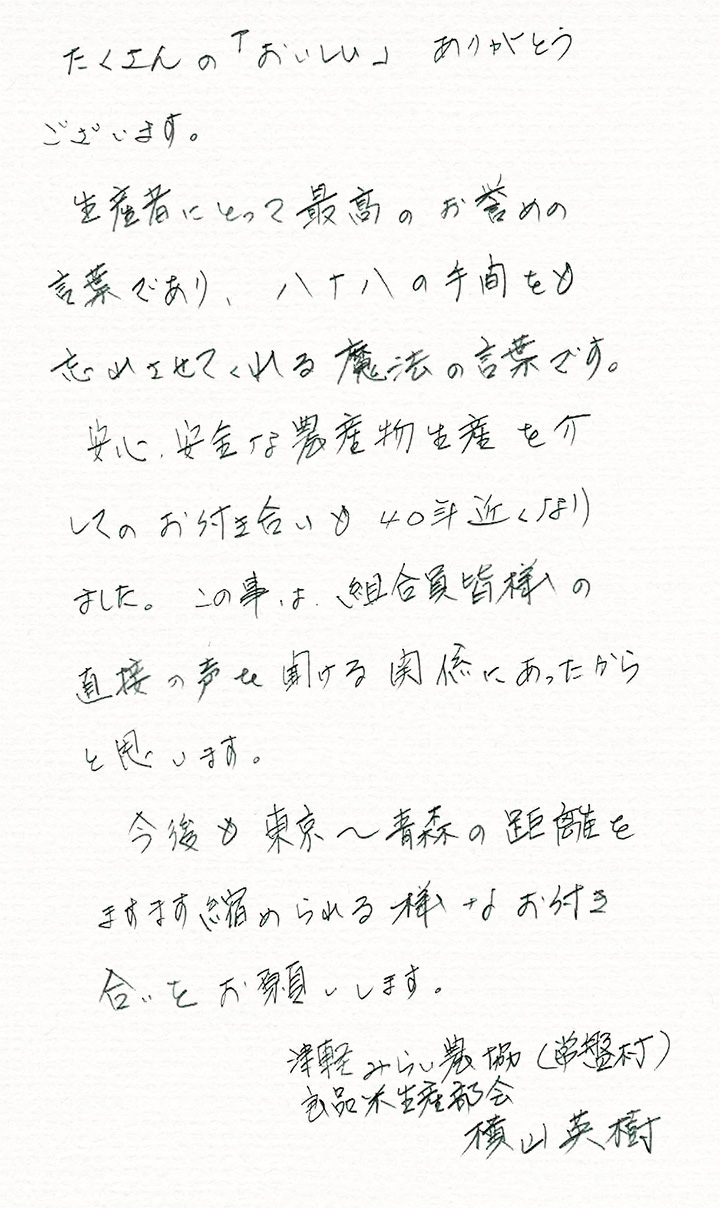 たくさんの「おいしい」ありがとう
ございます。
生産者にとって最高のお誉めの
言葉であり、八十八の手間をも
忘れさせてくれる魔法の言葉です。
安心、安全な農産物生産を介
してのお付き合いも40年近くなり
ました。この事は、組合員皆様の
直接の声を聞ける関係にあったから
と思います。
今後も東京～青森の距離を
ますます縮められる様なお付き
合いをお願いします。
津軽みらい農協（常盤村）
良品米生産部会
横山英樹